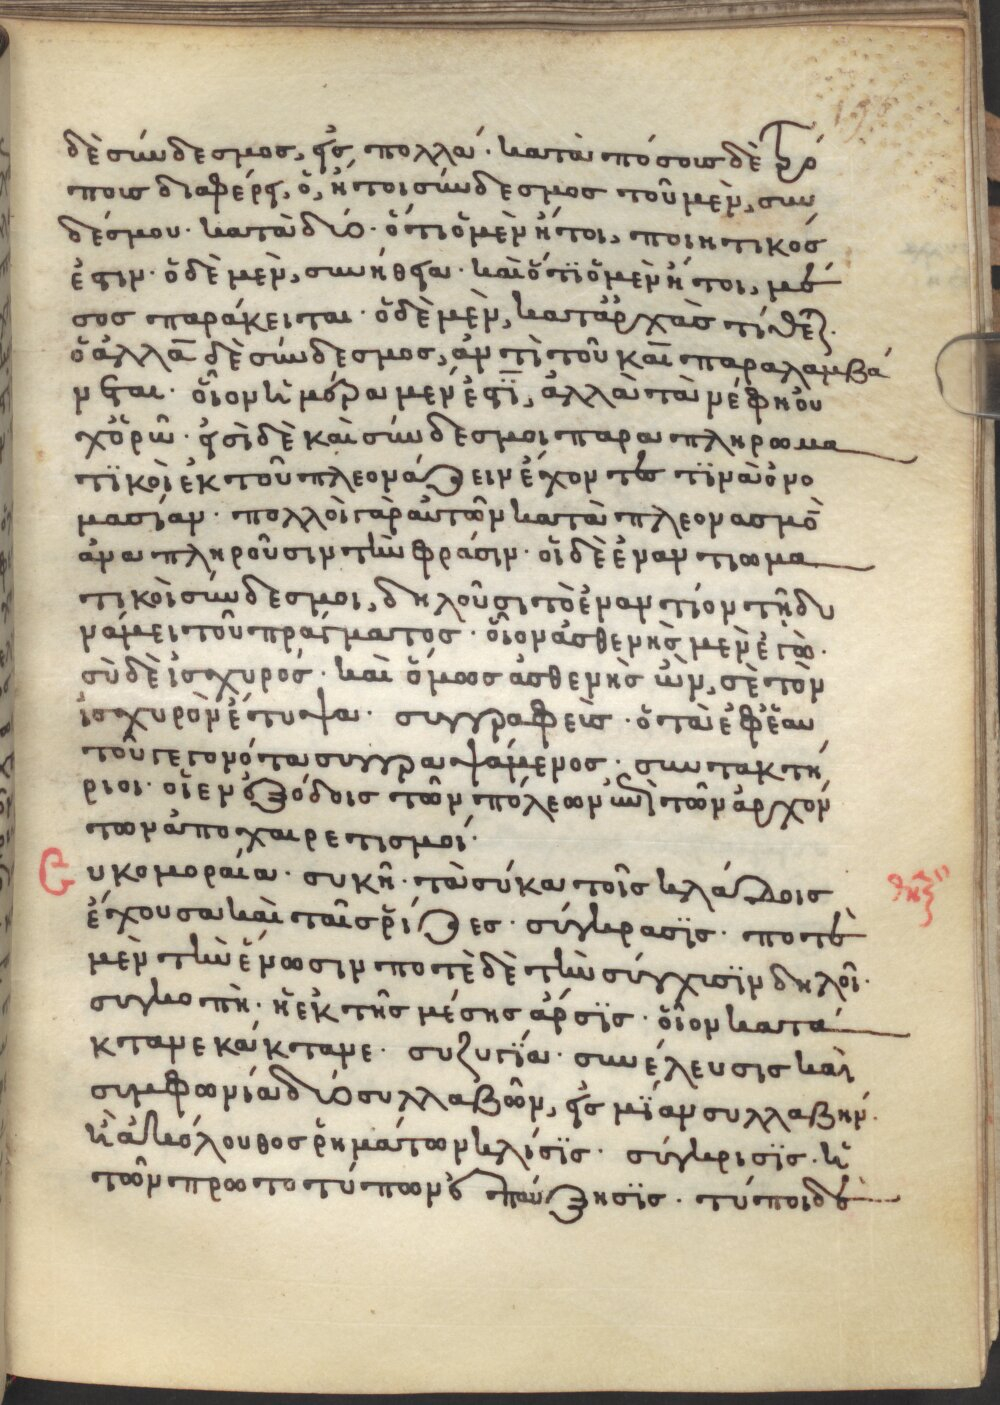 δὲ σύνδεσμος, εἰς πολλά· κατὰ πόσοις δὲ τρό
ποις διαφέρει, ὁ, ἤτοι σύνδεσμος τοῦ μὲν, συν
δέσμου· κατὰ δύο· ὅτι ὁ μὲν ἤτοι, ποιητικός
ἐστιν· ὁ δὲ μὲν, συνήθεια· καὶ ὅτϊ ὁ μὲν ἤτοι, με
σος παράκειται· ὁ δὲ μὲν, κατ ἀρχὰς τίθεται·
ὁ ἀλλὰ δὲ σύνδεσμος, ἀντὶ τοῦ καὶ παραλαμβά
νεται· οἷον
χ ὁρῶ· εἰσὶ δὲ καὶ σύνδεσμοι παραπληρωμα
τϊκοὶ ἐκ τοῦ πλεονάζειν ἔχοντες τϊνὰ ὀνο
μασίαν· πολλοὶ γὰρ αὐτῶν κατὰ πλεονασμὸ
ἀναπληροῦσιν τὴν φράσιν· οἱ δὲ ἐναντιωμα
τικοὶ σύνδεσμοι, δηλοῦσι τὸ ἐναντίον τῇ δυ
νάμει τοῦ πράγματος· οἷον ἀσθενὴς μὲν ἐγὼ·
σὺ δὲ ἰσχυρός· καὶ ὅμως ἀσθενὴς ὢν, σὲ τὸν
ἰσχυρὸν ἔτυψα· συγγραφεὺς· ὁ τὰ ἐφ ἑαυ
τοῦ γεγονότα συγγραψάμενος· συντακτή
ριοι· οἱ ἐν ἐξόδοις τῶν πόλεων καὶ τῶν ἀρχόν
των ἀποχαιρετισμοί·
Συκομοραία· συκῆ· τὰ σύκα τοῖς κλάδοις
ἔχουσα καὶ ταῖς ῥίζες· σύγκρασϊς· ποτὲ
μὲν τὴν ἕνωσιν ποτὲ δὲ τὴν σύγχυσϊν δηλοῖ·
συγκοπὴ· ἡ ἐκ τῆς μέσης ἄρσϊς· οἷον κατα
κτανε κάκτανε· συζυγϊα· συνέλευσις καὶ
συμφωνία δύο συλλαβῶν, εἰς μϊαν συλλαβην·
ἢ ἀκόλουθος ῥημάτων κλίσϊς· σύγκρισϊς· ἡ
τῶν πρωτοτύπων ἐπαύξησϊς· τύποι δὲ